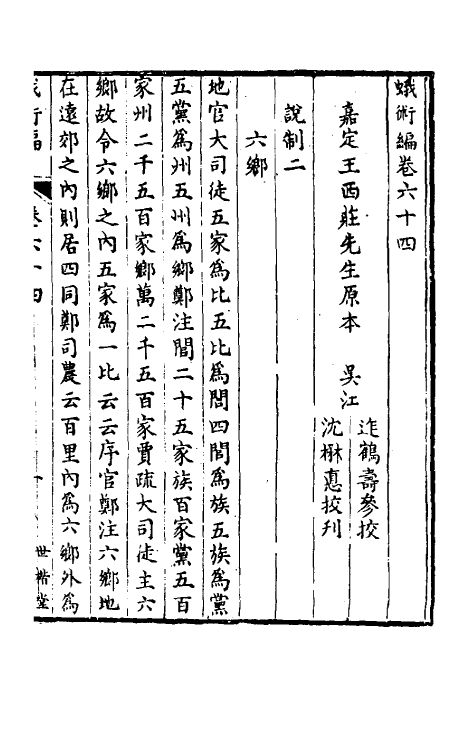 蛾術編卷六十四
嘉定王西莊先生原本
吳江
迮鶴壽參挍
沈楙悳挍刋
說制二
六鄉
地官大司徒五家爲比五比爲閭四閭爲族五族爲黨
五黨爲州五州爲鄉鄭注閭二十五家族百家黨五百
家州二千五百家鄉萬二千五百家賈疏大司徒主六
鄉故令六鄉之內五家爲一比云云序官鄭注六鄉地
在遠郊之內則居四同鄭司農云百里內爲六鄉外爲
術編
卷六十四
世楷堂